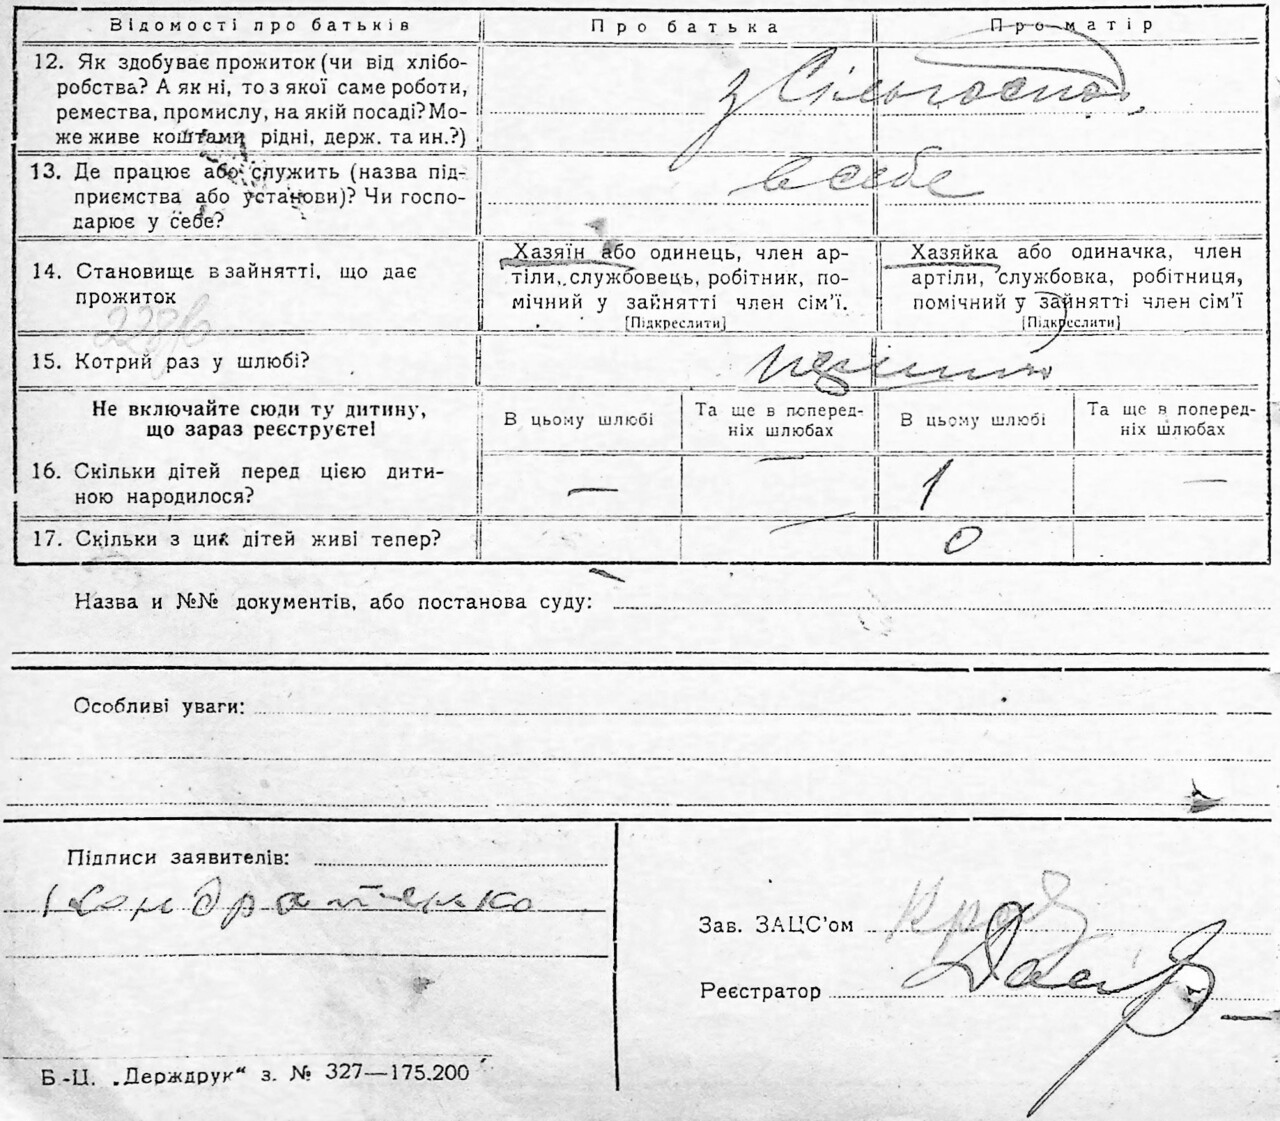 Відомості про батьків Про батька Про матір
12. Як здобуває прожиток (чи від хлібо-
робства? А як ні, то з якої саме роботи,
ремества, промислу, на якій посаді? Мо-
же живе коштами рідні, держ. та ин.?)
з Сільгоспод.
13. Де працює або служить (назва під-
приємства або установи)? Чи госпо-
дарює у себе?
в себе
14. Становище в зайнятті, що дає
прожиток
Хазяїн або одинець, член ар-
тіли, службовець, робітник, по-
мічний у зайнятті член сім'ї.
[Підкреслити]
Хазяйка або одиначка, член
артіли, службовка, робітниця,
помічний у зайнятті член сім'ї
[Підкреслити]
15. Котрий раз у шлюбі?
Не включайте сюди ту дитину,
що зараз реєструєте!
В цьому шлюбі
Та ще в поперед-
ніх шлюбах
В цьому шлюбі
Та ще в поперед-
ніх шлюбах
16. Скільки дітей перед цією дити-
ною народилося?
— — 1 —
17. Скільки з цих дітей живі тепер?
— 0
Назва и №№ документів, або постанова суду:
Особливі уваги:
Підписи заявителів:
Кондратенко
Зав. ЗАЦС'ом
Реєстратор
Б.-Ц. „Держдрук“ з. № 327—175.200